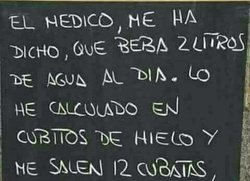 EL MEDICO, ME HA
DICHO, QUE BEBA 2 LITROS
DE AGUA AL DIA. LO
HE CALCULADO EN
CUBITOS DE HIELO Y
ME SALEN 12 CUBATAS,